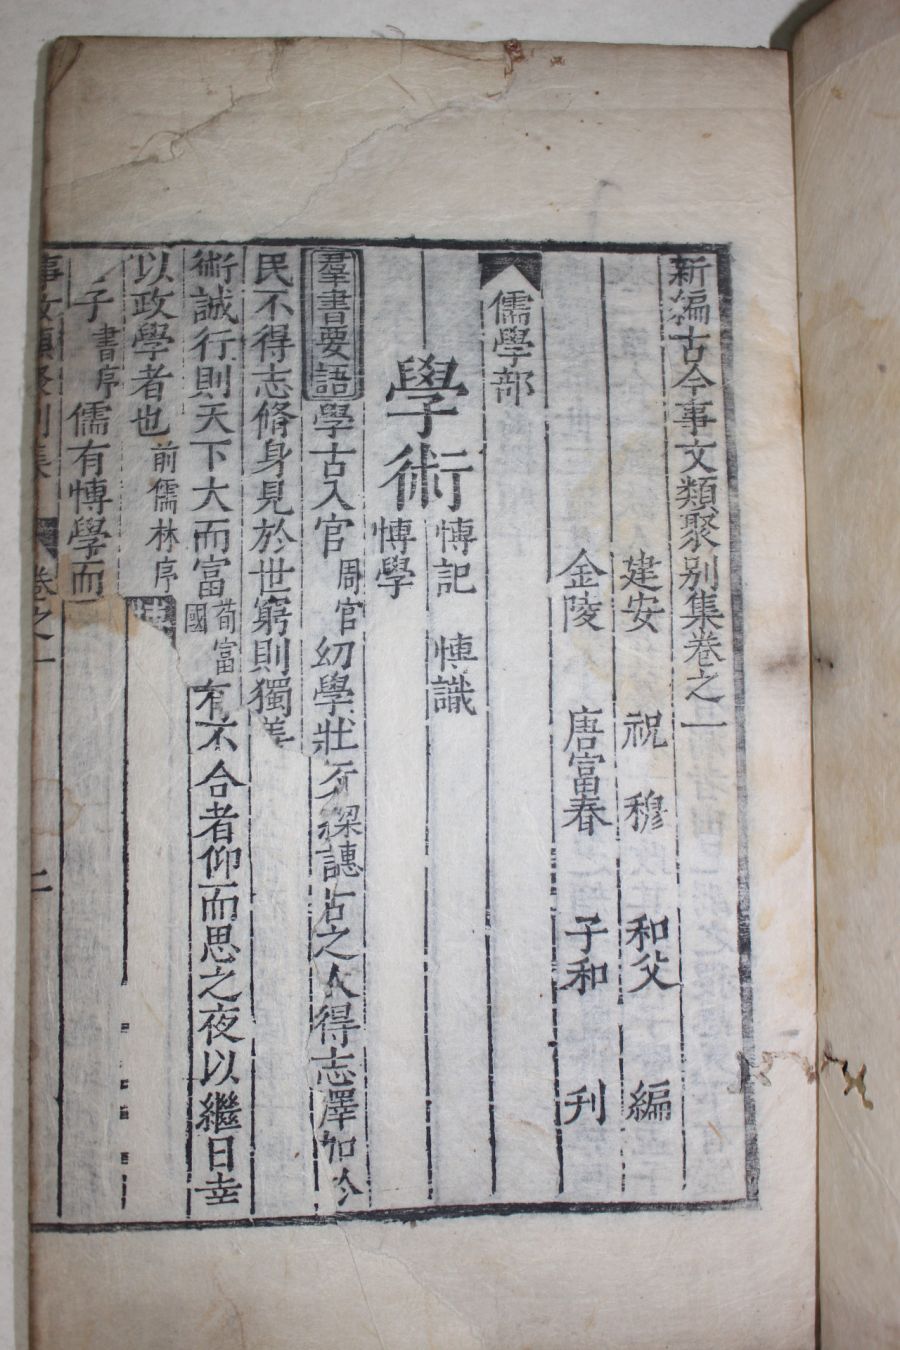 新編古今事文類聚別集卷之一
建安 祝 穆 和父 編
金陵 唐富春 子和 刊
儒學部
學術
愽記 愽識
愽學
羣書要語 學古入官 周官 幼學壯 梁譓 古之人得志澤加於
民不得志脩身見於世窮則獨善
術誠行則天下大而富 荀富國 有不合者仰而思之夜以繼日幸
以政學者也 前儒林序
子 書序 儒有愽學而
事文類聚別集 卷之一 二